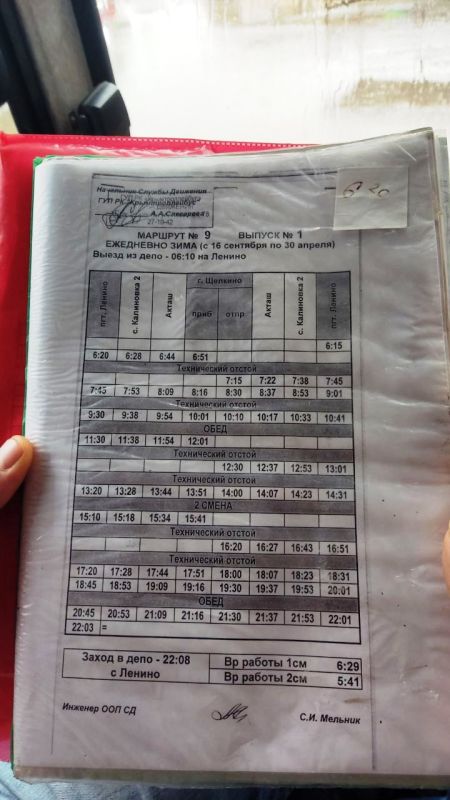 Начальник Службы Движения
ГУП РК "Крымтроллейбус"
А.А.Слесарева
27-10-42
6 20
МАРШРУТ № 9 ВЫПУСК № 1
ЕЖЕДНЕВНО ЗИМА (с 16 сентября по 30 апреля)
Выезд из депо - 06:10 на Ленино
пгт. Ленино с. Калиновка 2 Акташ г. Щелкино Акташ с. Калиновка 2 пгт. Ленино
приб отпр
6:15
6:20 6:28 6:44 6:51
Технический отстой
7:15 7:22 7:38 7:45
7:45 7:53 8:09 8:16 8:30 8:37 8:53 9:01
Технический отстой
9:30 9:38 9:54 10:01 10:10 10:17 10:33 10:41
ОБЕД
11:30 11:38 11:54 12:01
Технический отстой
12:30 12:37 12:53 13:01
Технический отстой
13:20 13:28 13:44 13:51 14:00 14:07 14:23 14:31
2 СМЕНА
15:10 15:18 15:34 15:41
Технический отстой
16:20 16:27 16:43 16:51
Технический отстой
17:20 17:28 17:44 17:51 18:00 18:07 18:23 18:31
18:45 18:53 19:09 19:16 19:30 19:37 19:53 20:01
ОБЕД
20:45 20:53 21:09 21:16 21:30 21:37 21:53 22:01
22:03 =
Заход в депо - 22:08 Вр работы 1см 6:29
с Ленино Вр работы 2см 5:41
Инженер ООП СД С.И. Мельник